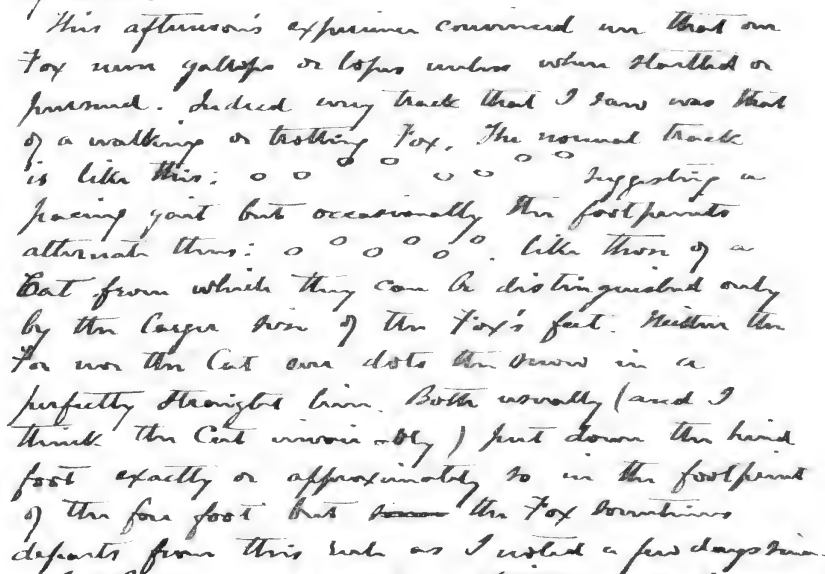 This afternoon's experience convinced me that our
Fox never gallops or lopes unless when startled or
pursued. Indeed every track that I saw was that
of a walking or trotting Fox. The normal track
is like this: o o o o o o o o suggesting a
pacing gait but occasionally the footprints
alternate thus: o o o o o o. like those of a
Cat from which they can be distinguished only
by the larger size of the Fox's feet. Neither the
Fox nor the Cat ever dots the snow in a
perfectly straight line. Both usually (and I
think the Cat invariably) put down the hind
foot exactly or approximately so in the footprint
of the fore foot but the Fox sometimes
departs from this rule as I noted a few days since.